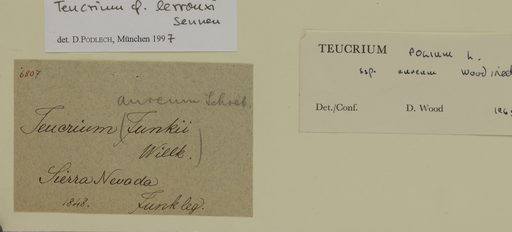 Teucrium cf. lerrouxi
Sennen
det. D.PODLECH, München 1997
6807
aureum Schreb.
Teucrium (Funkii
Willk.)
Sierra Nevada
1848. Funk leg.
TEUCRIUM POLIUM L.
ssp. aureum Wood ined
Det./Conf. D. Wood